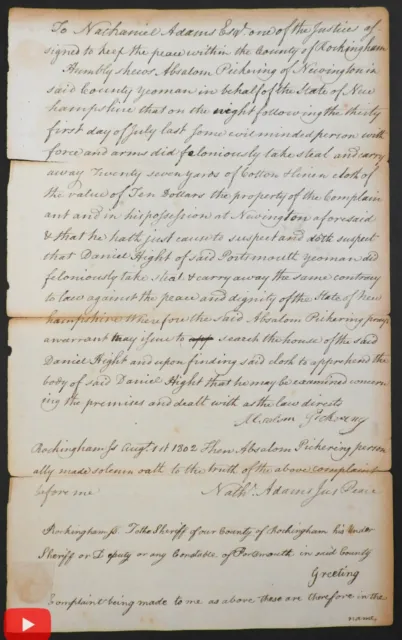 To Nathaniel Adams Esqr. one of the Justices as
signed to keep the peace within the County of Rockingham
Humbly shews Absalom Pickering of Newington in
said County Yeoman in behalf of the State of New
hampshire that on the night following the thirty
first day of July last some evil minded person with
force and arms did feloniously take steal and carry
away Twenty seven yards of Cotton & linen cloth of
the value of Ten Dollars the property of the Complain
ant and in his possession at Newington aforesaid
& that he hath just cause to suspect and doth suspect
that Daniel Hight of said Portsmouth Yeoman did
feloniously take steal & carry away the same contrary
to law against the peace and dignity of the State of New
hampshire Wherefore the said Absalom Pickering prays
a warrant may issue to app search the house of the said
Daniel Hight and upon finding said cloth to apprehend the
body of said Daniel Hight that he may be examined concern
ing the premises and dealt with as the law directs
Absalom Pickering
Rockingham ss Augt. 1st 1802 Then Absalom Pickering person
ally made solemn oath to the truth of the above complaint
before me Nathl. Adams Jus Peace
Rockingham ss. To the Sheriff of our County of Rockingham his Under
Sheriff or Deputy or any Constable of Portsmouth in said County
Greeting
Complaint being made to me as above these are therefore in the
name,